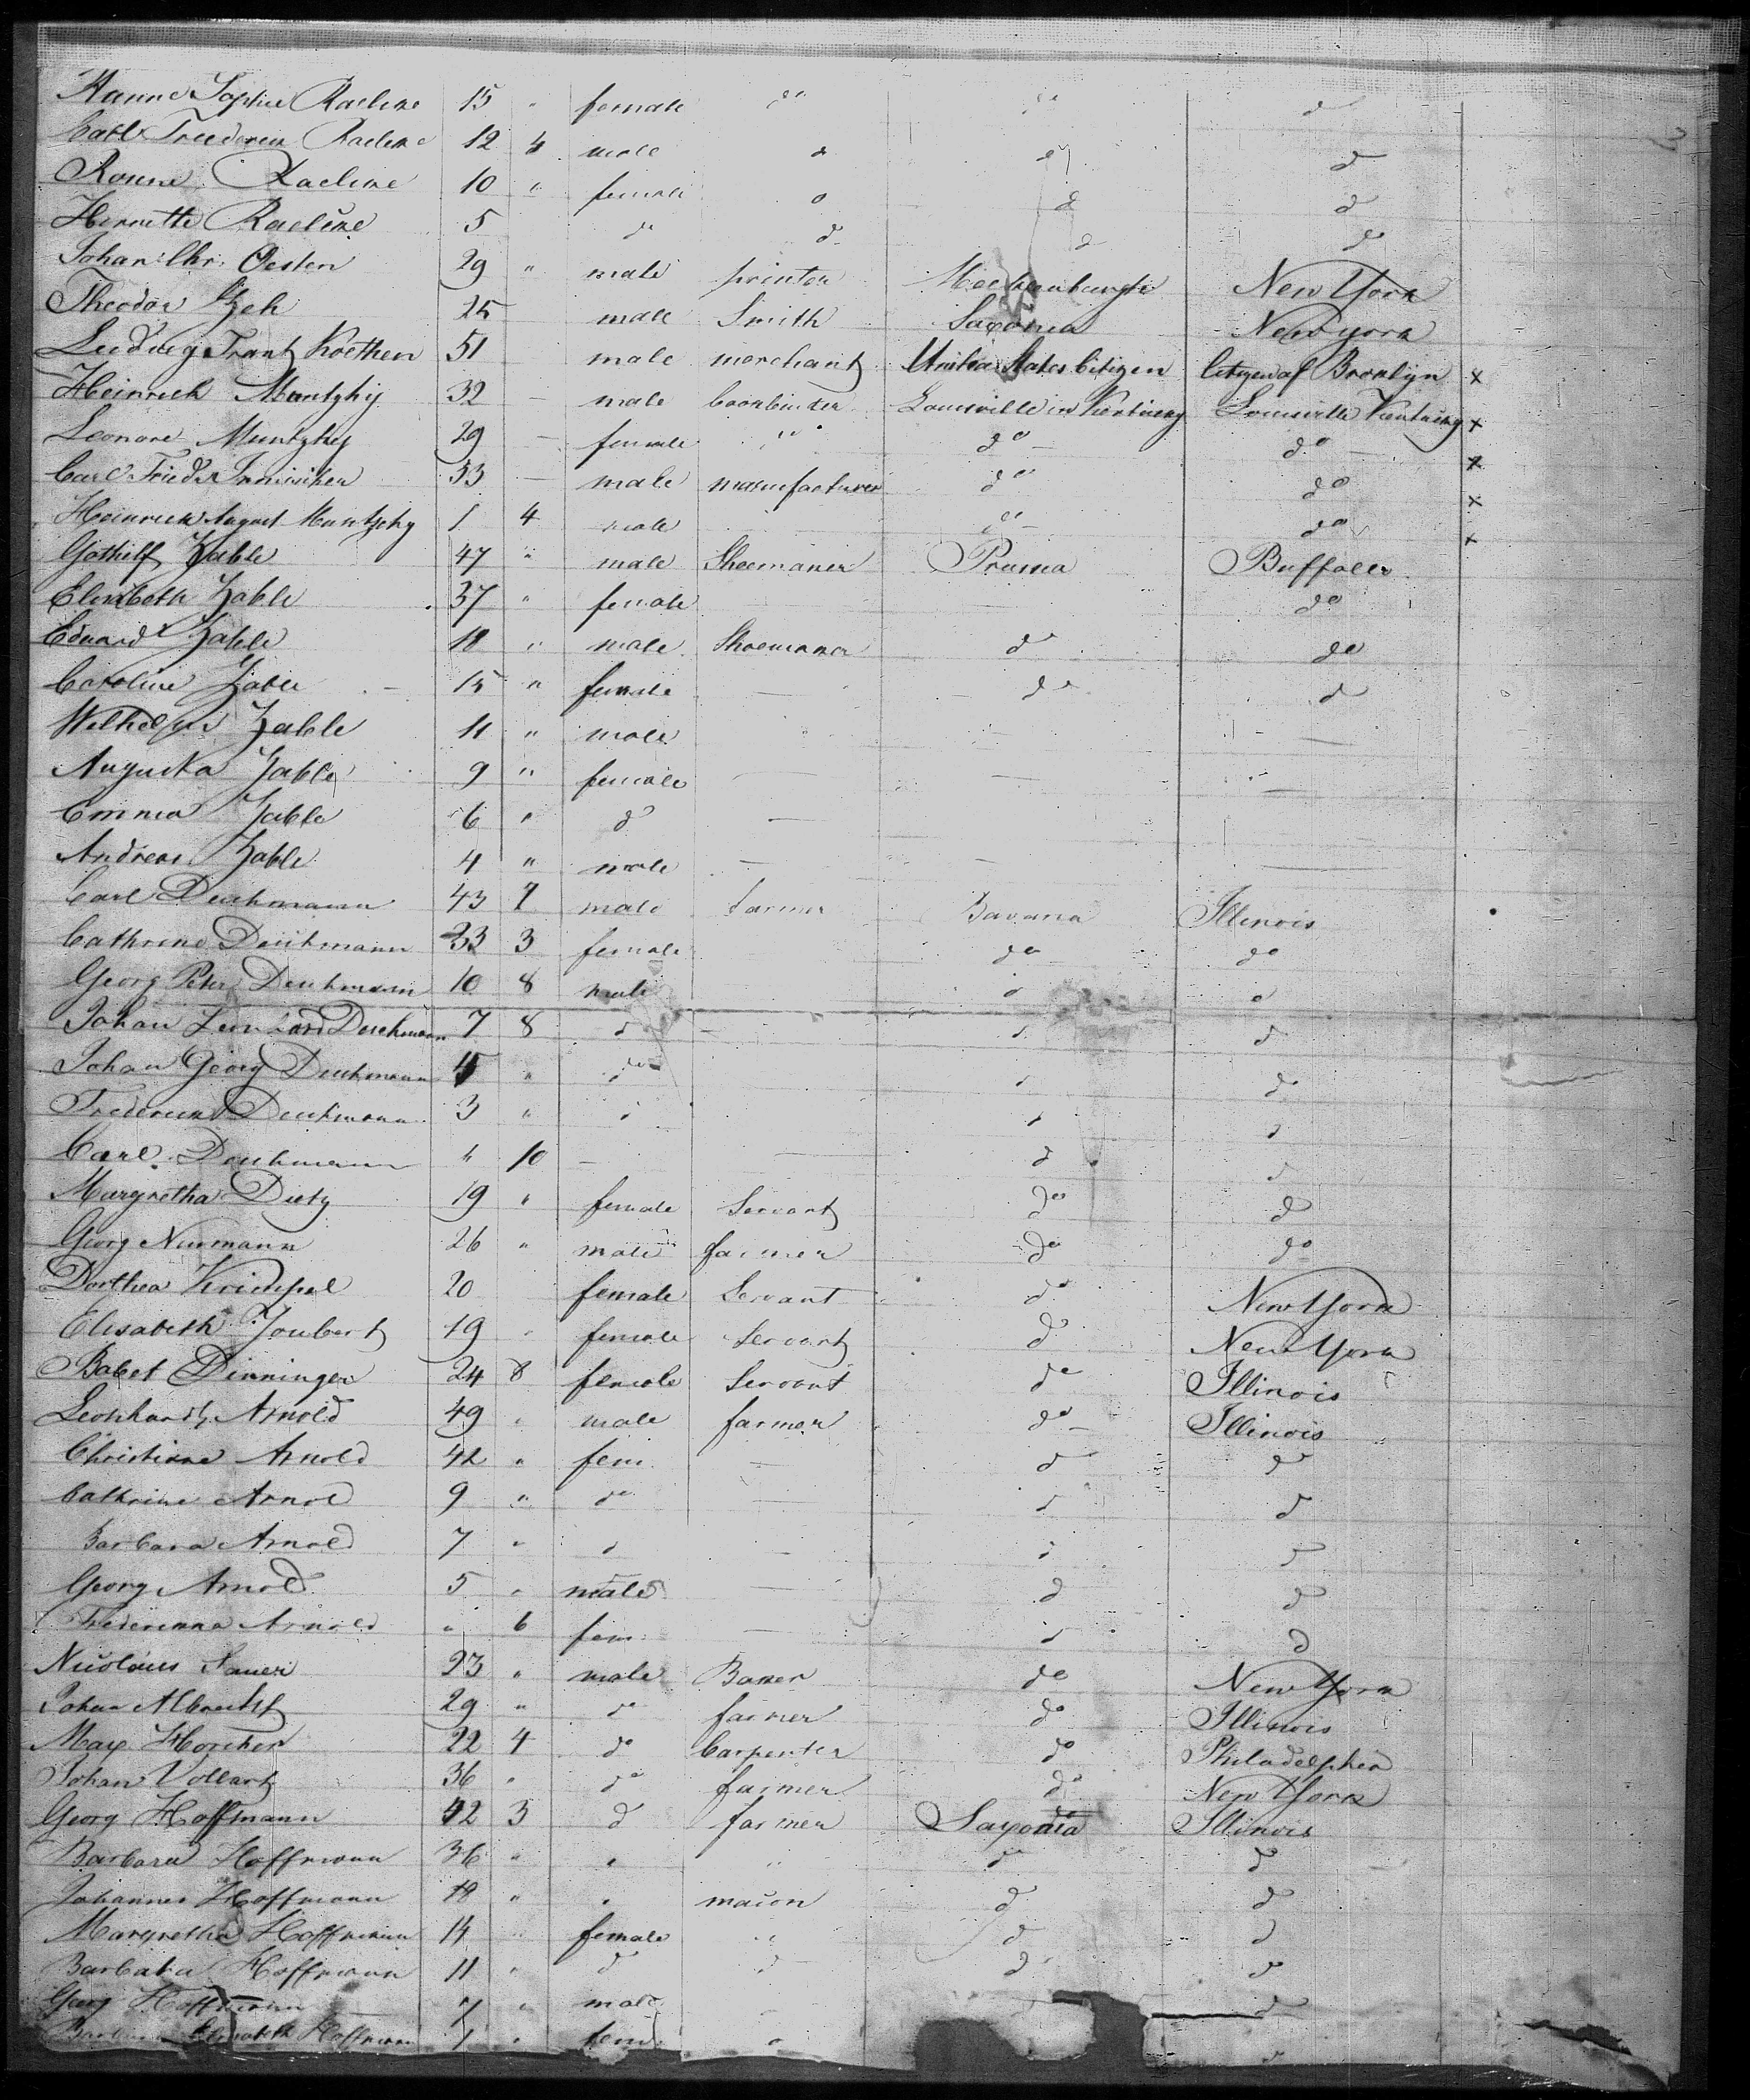 Hanne Sophie Raelike 15 " female do do d
Carl Friederick Raelike 12 4 male d d d
Hanne Raelike 10 " female d d
Henrette Raelike 5 do d d do
Johan Chr. Oesten 29 " male printer Mecklenburgh New York
Theodor Zeh 25 male Smith Saxonia New york
Ludwig Frantz Koethen 51 male merchant United States Citizen Citizen of Brooklyn x
Heinrich Muntzky 32 male bookbinder Louisville in Kentucky Louisville Kentucky x
Leonore Muntzky 29 female " do do x
Carl Friedr 33 male manufacturer do do x
Heinrich August Muntzky 1 4 male do do x
Gothilf Zable 47 " male Shoemaker Prussia Buffalo
Elisabeth Zable 37 " female do
Eduard Zable 18 " male Shoemaker d do
Caroline Zable 15 " female do d
Wilhelm Zable 11 " male
Augusta Zable 9 " female
Emma Zable 6 " d
Andreas Zable 4 " male
Carl Deichmann 43 7 male farmer Bavaria Illinois
Cathrine Deichmann 33 3 female do do
Georg Peter Deichmann 10 8 male d d
Johan Leonhard Deichmann 7 8 d d d
Johan Georg Deichmann 5 " do d do
Frederick Deichmann 3 " d d d
Carl Deichmann " 10 d d
Margretha Dietz 19 " female Servant do d
Georg Neumann 26 " male farmer do do
Dorthea 20 female Servant do New York
Elisabeth Joubert 19 " female Servant do New York
Babet Dinninger 24 8 female Servant do Illinois
Leonhardt Arnold 49 " male farmer do Illinois
Christine Arnold 42 " fem d do
Cathrine Arnold 9 " do d d
Barbara Arnold 7 " d d d
Georg Arnold 5 " male d d
Frederikka Arnold " 6 fem d d
Nicolaus Sauer 23 " male Baker do New York
Johan Albrecht 29 " d farmer do Illinois
Max Horcher 22 4 do Carpenter do Philadelphia
Johan Vollart 36 " do farmer do New York
Georg Hoffmann 42 3 d farmer Saxonia Illinois
Barbara Hoffmann 36 " " " do d
Johannes Hoffmann 18 " " mason d d
Margretha Hoffmann 14 " female " d d
Barbara Hoffmann 11 " d d d d
Georg Hoffmann 7 " male d
Elisabeth Hoffmann 1 " fem d